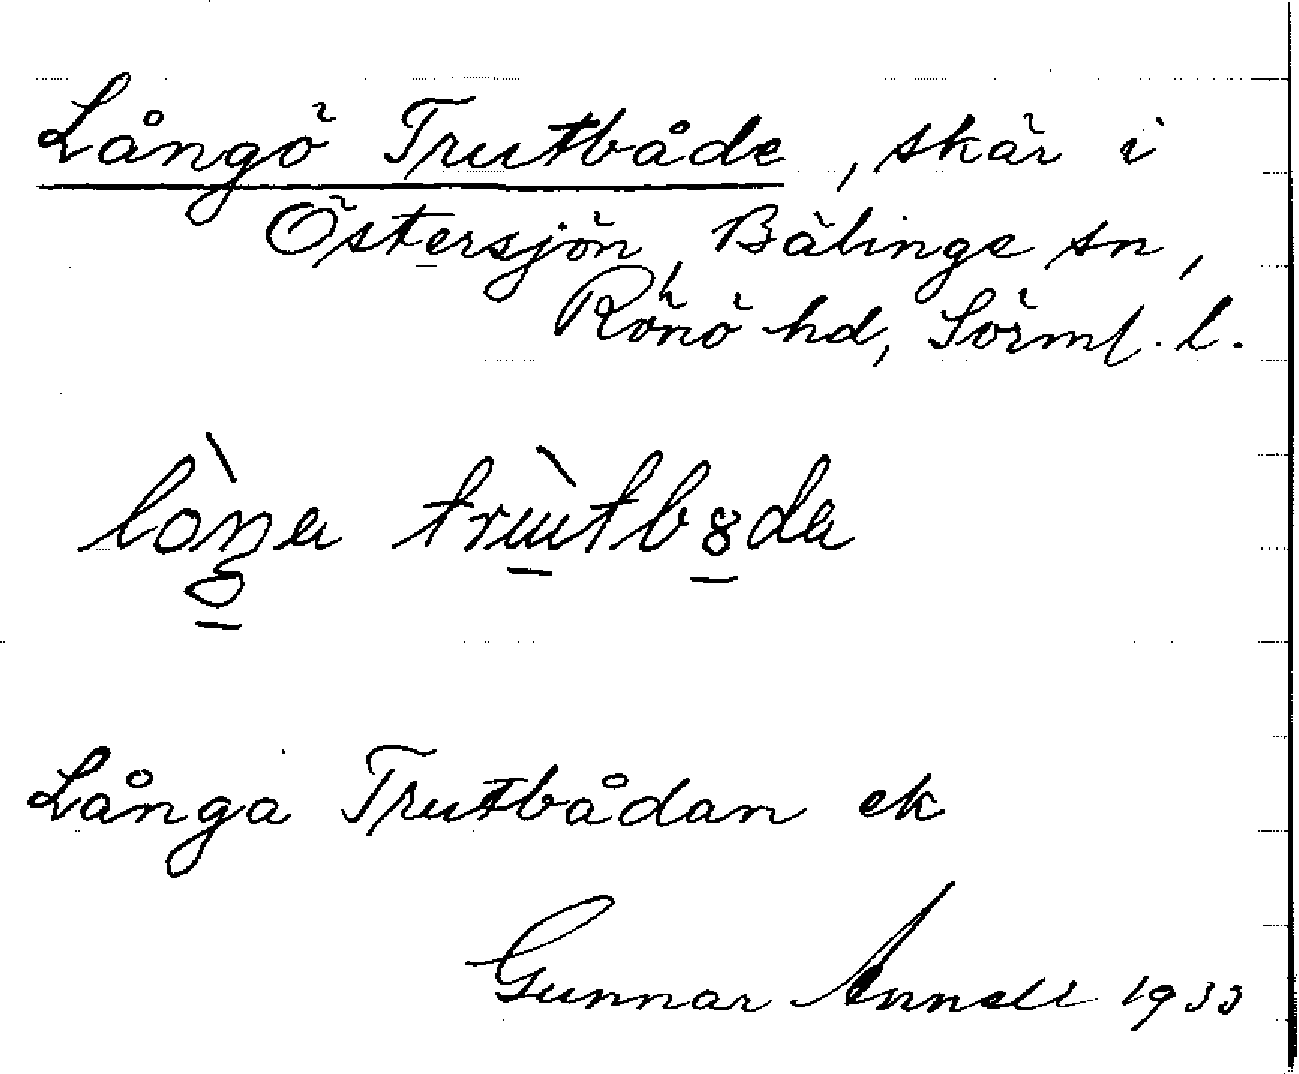 Långö Trutbåde, skär i
Östersjön, Bälinge sn,
Rönö hd, Sörml. l.
lòŋa trùtb8da
Långa Trutbådan ek
Gunnar 1933